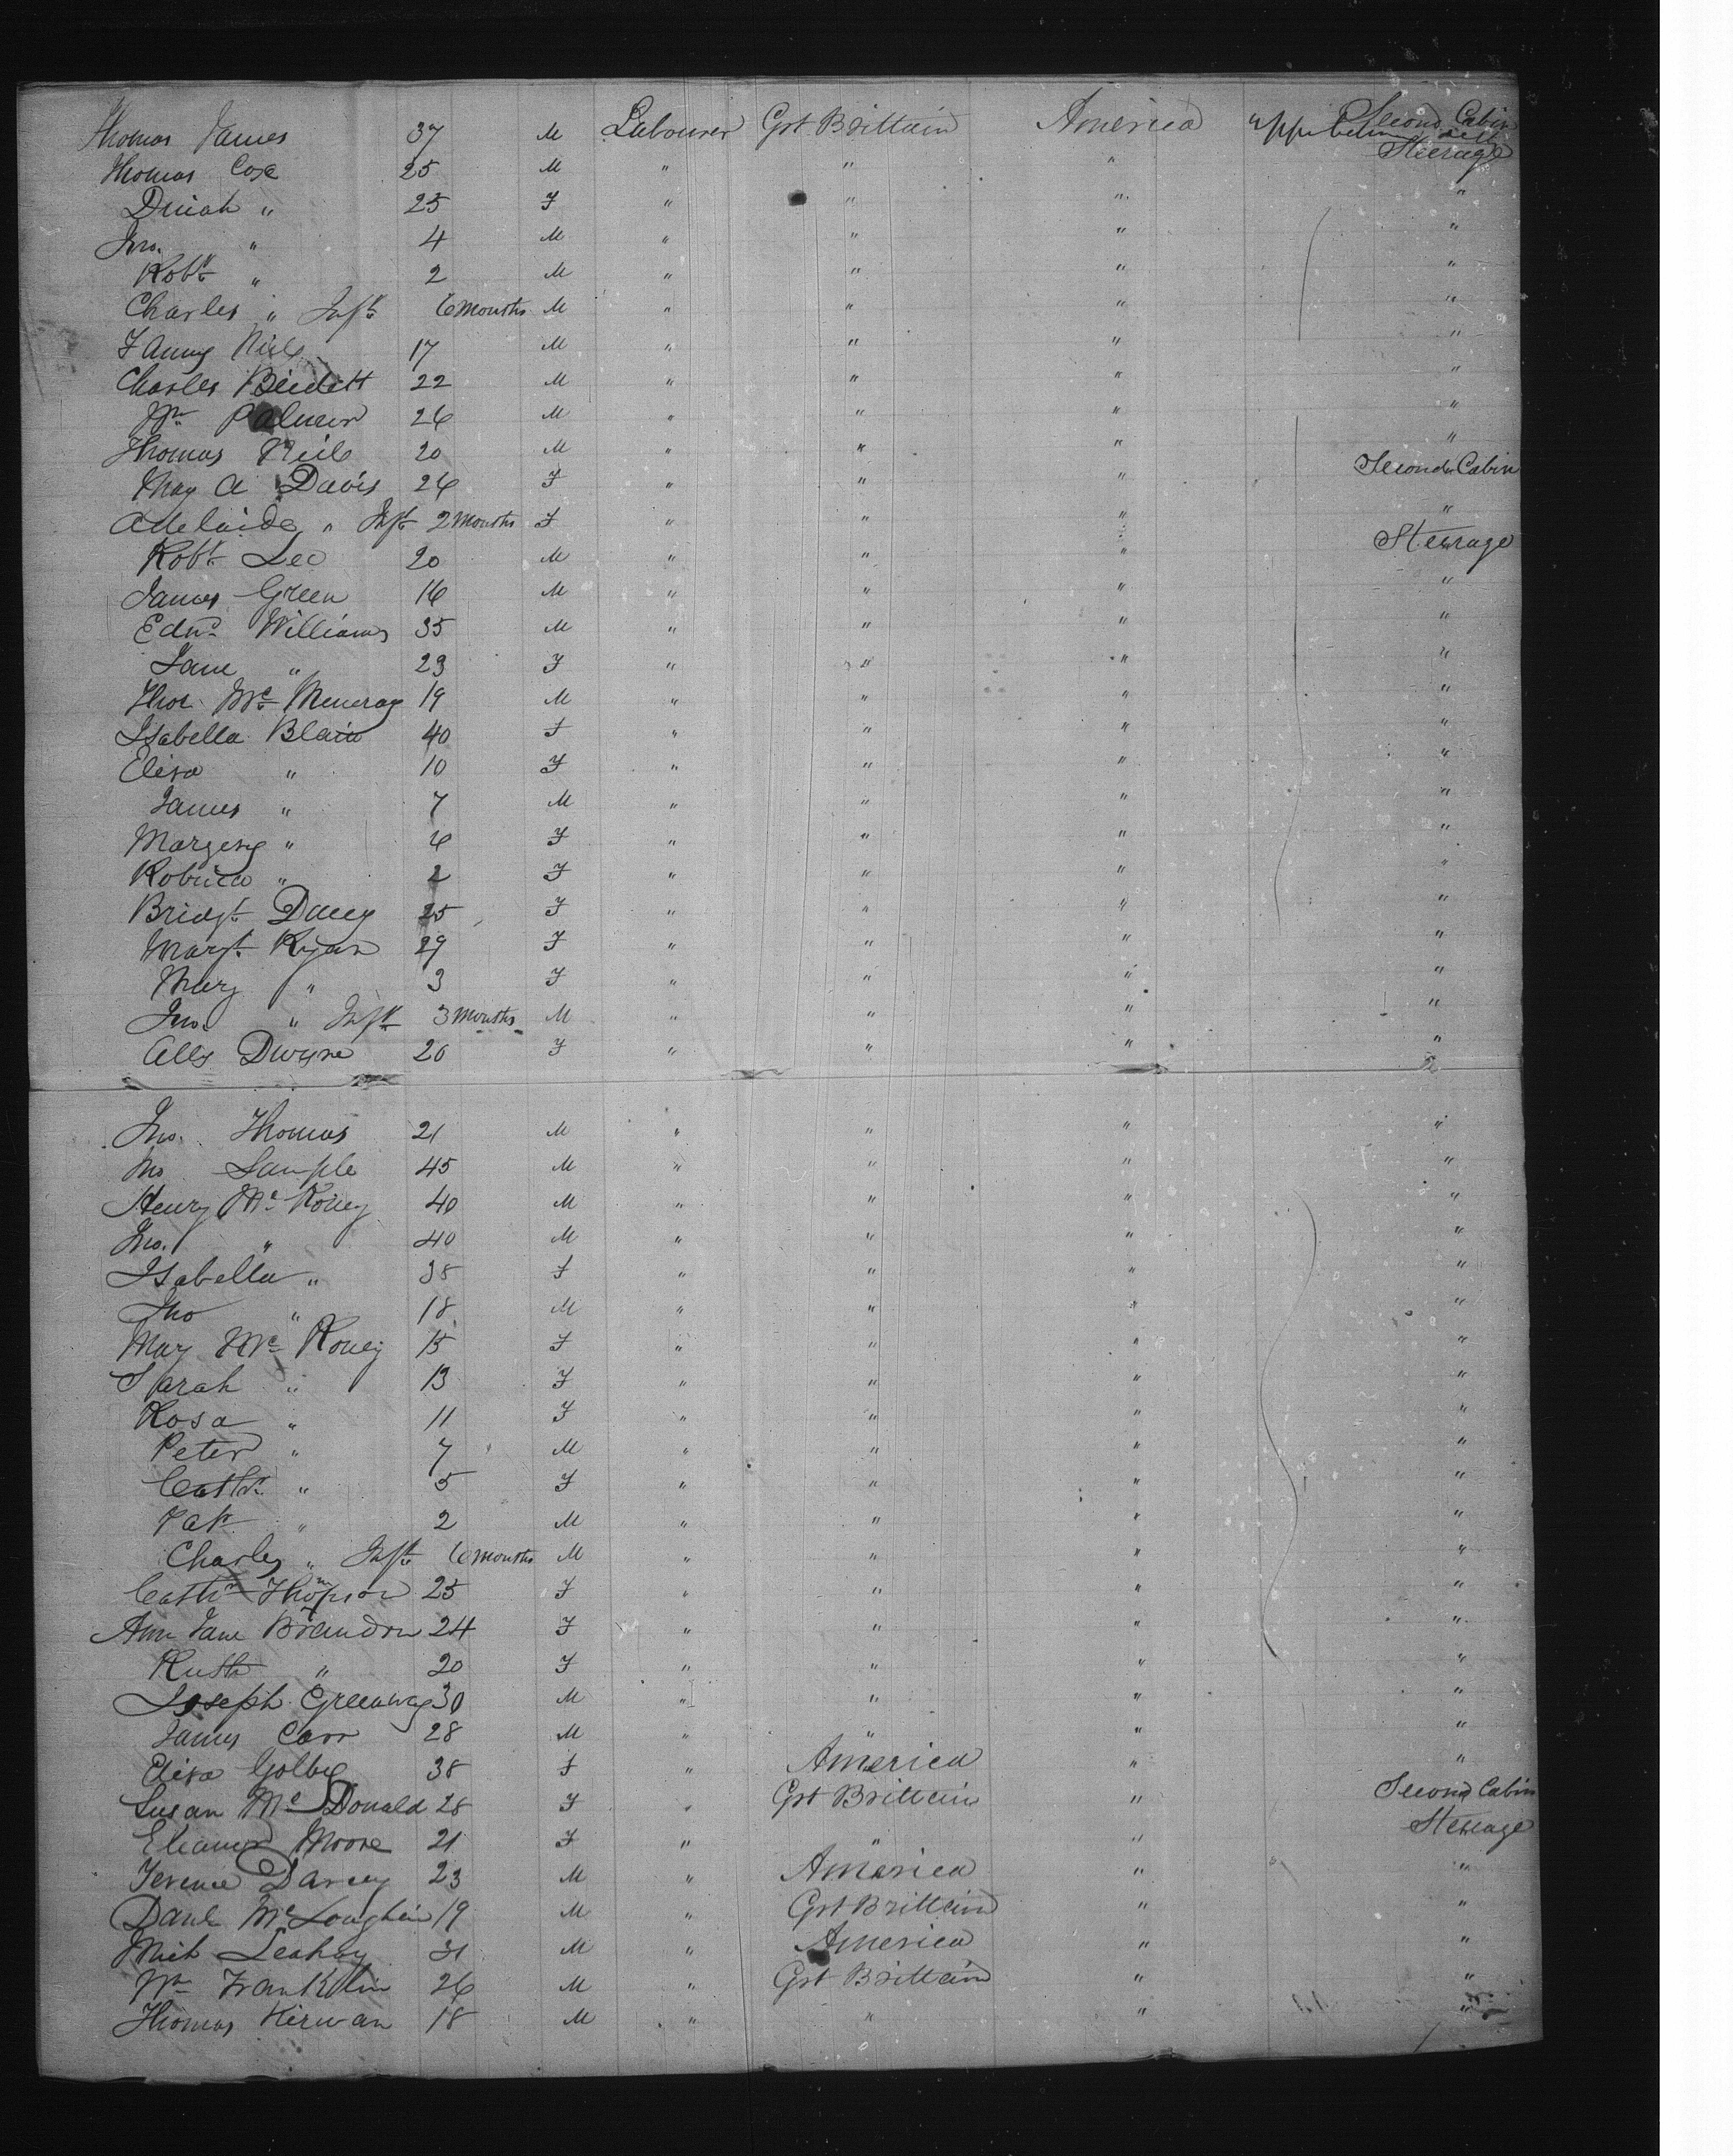 Thomas James 37 M Labourer Grt Brittain America Second Cabin
Steerage
Thomas Cox 25 M " " "
Dinah " 25 F " " " "
Jno. " 4 M " " " "
Robt " 2 M " " " "
Charles " Inft 6 Months M " " " "
Fanny 17 M " " " "
Charles 22 M " " " "
Wm Palmer 26 M " " " "
Thomas 20 M " " " "
May A Davis 26 F " " " Second Cabin
Adelaide " Inft 2 Months F " " " "
Robt Lee 20 M " " " Steerage
James Green 16 M " " " "
Edwd Williams 35 M " " " "
Jane " 23 F " " " "
Thos Mc 19 M " " " "
Isabella Blain 40 F " " " "
Elisa " 10 F " " " "
James " 7 M " " " "
Margery " 6 F " " " "
Robina " 2 F " " " "
Bridgt 25 F " " " "
Margt Ryan 29 F " " " "
Mary " 3 F " " " "
Jno. " Inft 3 Months M " " " "
Ally Dwyre 20 F " " " "
Jno. Thomas 21 M " " " "
Jno Sample 45 M " " " "
Henry Mc 40 M " " " "
Jno. " 40 M " " " "
Isabella " 38 F " " " "
Jno " 18 M " " " "
May Mc 15 F " " " "
Sarah " 13 F " " " "
Rosa " 11 F " " " "
Peter " 7 M " " " "
Cathn " 5 F " " " "
Pat " 2 M " " " "
Charles " Inft 6 Months M " " " "
Cathn Thompson 25 F " " " "
Ann Jane Brandon 24 F " " " "
Ruth " 20 F " " " "
Joseph Greenway 30 M " " " "
James Carr 28 M " " " "
Elisa Golbey 38 F " America " "
Susan Mc Donald 28 F " Grt Brittain " Second Cabin
Eleanor Moore 21 F " " " Steerage
Terence Darcey 23 M " America " "
Danl McLoughlin 19 M " Grt Brittain " "
Mich Leahay 31 M " America " "
Wm Franklin 26 M " Grt Brittain " "
Thomas Kirwan 18 M " " " "